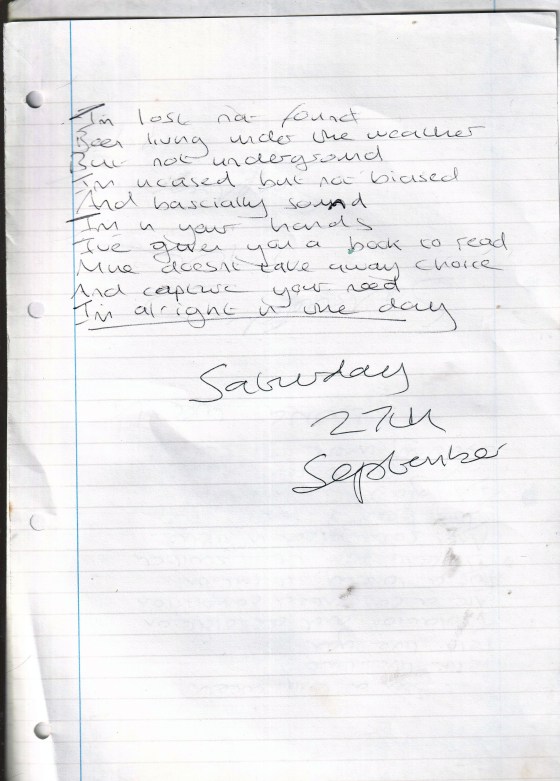 I'm lost not found
Been living under the weather
But not underground
I'm biased but not biased
And bascially sound
I'm in your hands
I've given you a book to read
Mine doesn't take away choice
And capture your need
I'm alright in the day
Saturday
27th
September